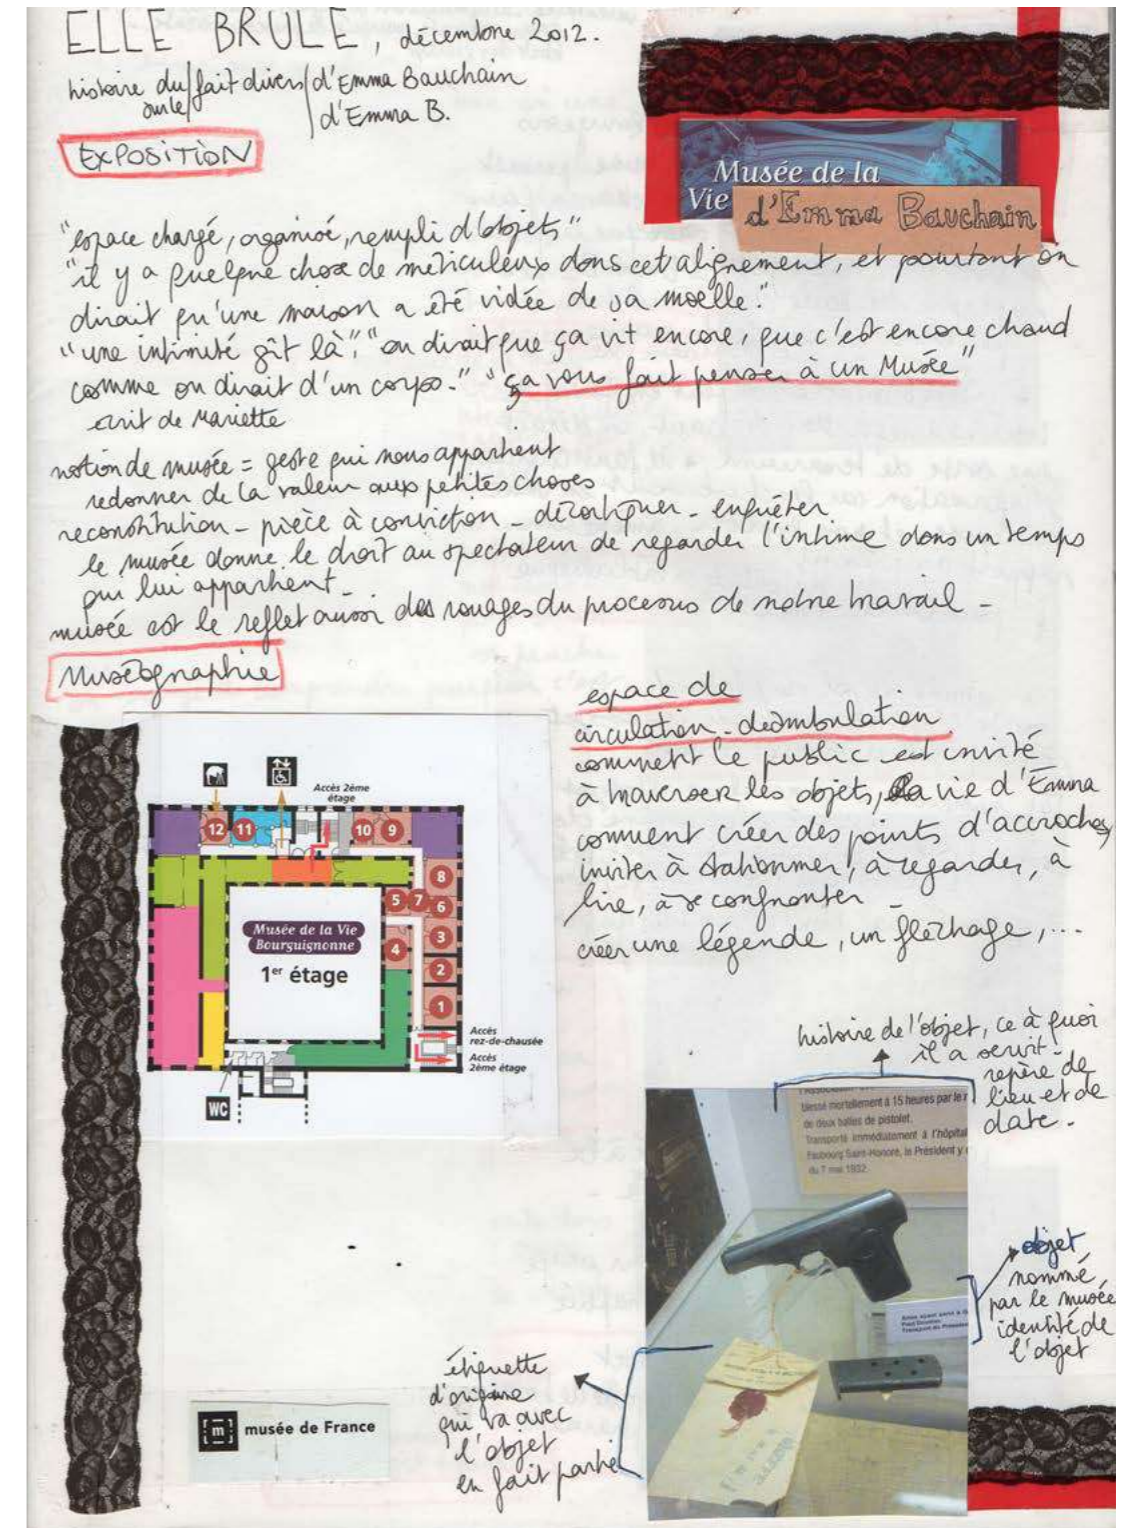 ELLE BRULE, décembre 2012.
histoire du/fait divers/d'Emma Bauchain
ou le/ /d'Emma B.
EXPOSITION
Musée de la
Vie
d'Emma Bauchain
"espace chargé, organisé, rempli d'objets"
"il y a quelque chose de méticuleux dans cet alignement, et pourtant on
dirait qu'une maison a été vidée de sa moelle."
"une intimité gît là", "on dirait que ça vit encore, que c'est encore chaud
comme on dirait d'un corps." "ça vous fait penser à un Musée"
écrit de Mariette
notion de musée = geste qui nous appartient
redonner de la valeur aux petites choses
reconstitution - pièce à conviction - décortiquer - enquêter
le musée donne le droit au spectateur de regarder l'intime dans un temps
qui lui appartient -
musée est le reflet aussi des rouages du processus de notre travail -
Muséographie
espace de
circulation - déambulation
comment le public est invité
à traverser les objets, la vie d'Emma
comment créer des points d'accroches,
inviter à stationner, à regarder, à
lire, à se confronter -
créer une légende, un fléchage, ...
Accès 2ème
étage
12 11 10 9
8
5 7 6
4 3
2
1
Musée de la Vie
Bourguignonne
1er étage
Accès
rez-de-chausée
Accès
2ème étage
WC
histoire de l'objet, ce à quoi
il a servit -
repère de
lieu et de
date -
blessé mortellement à 15 heures par le
de deux balles de pistolet.
Transporté immédiatement à l'hôpital
Faubourg Saint-Honoré, le Président y
du 7 mai 1932.
objet
nommé
par le musée
identité de
l'objet
étiquette
d'origine
qui va avec
l'objet
en fait partie
m musée de France